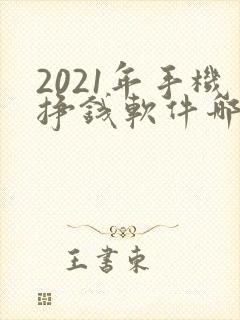 2021年手機
掙錢軟件哪
王書東